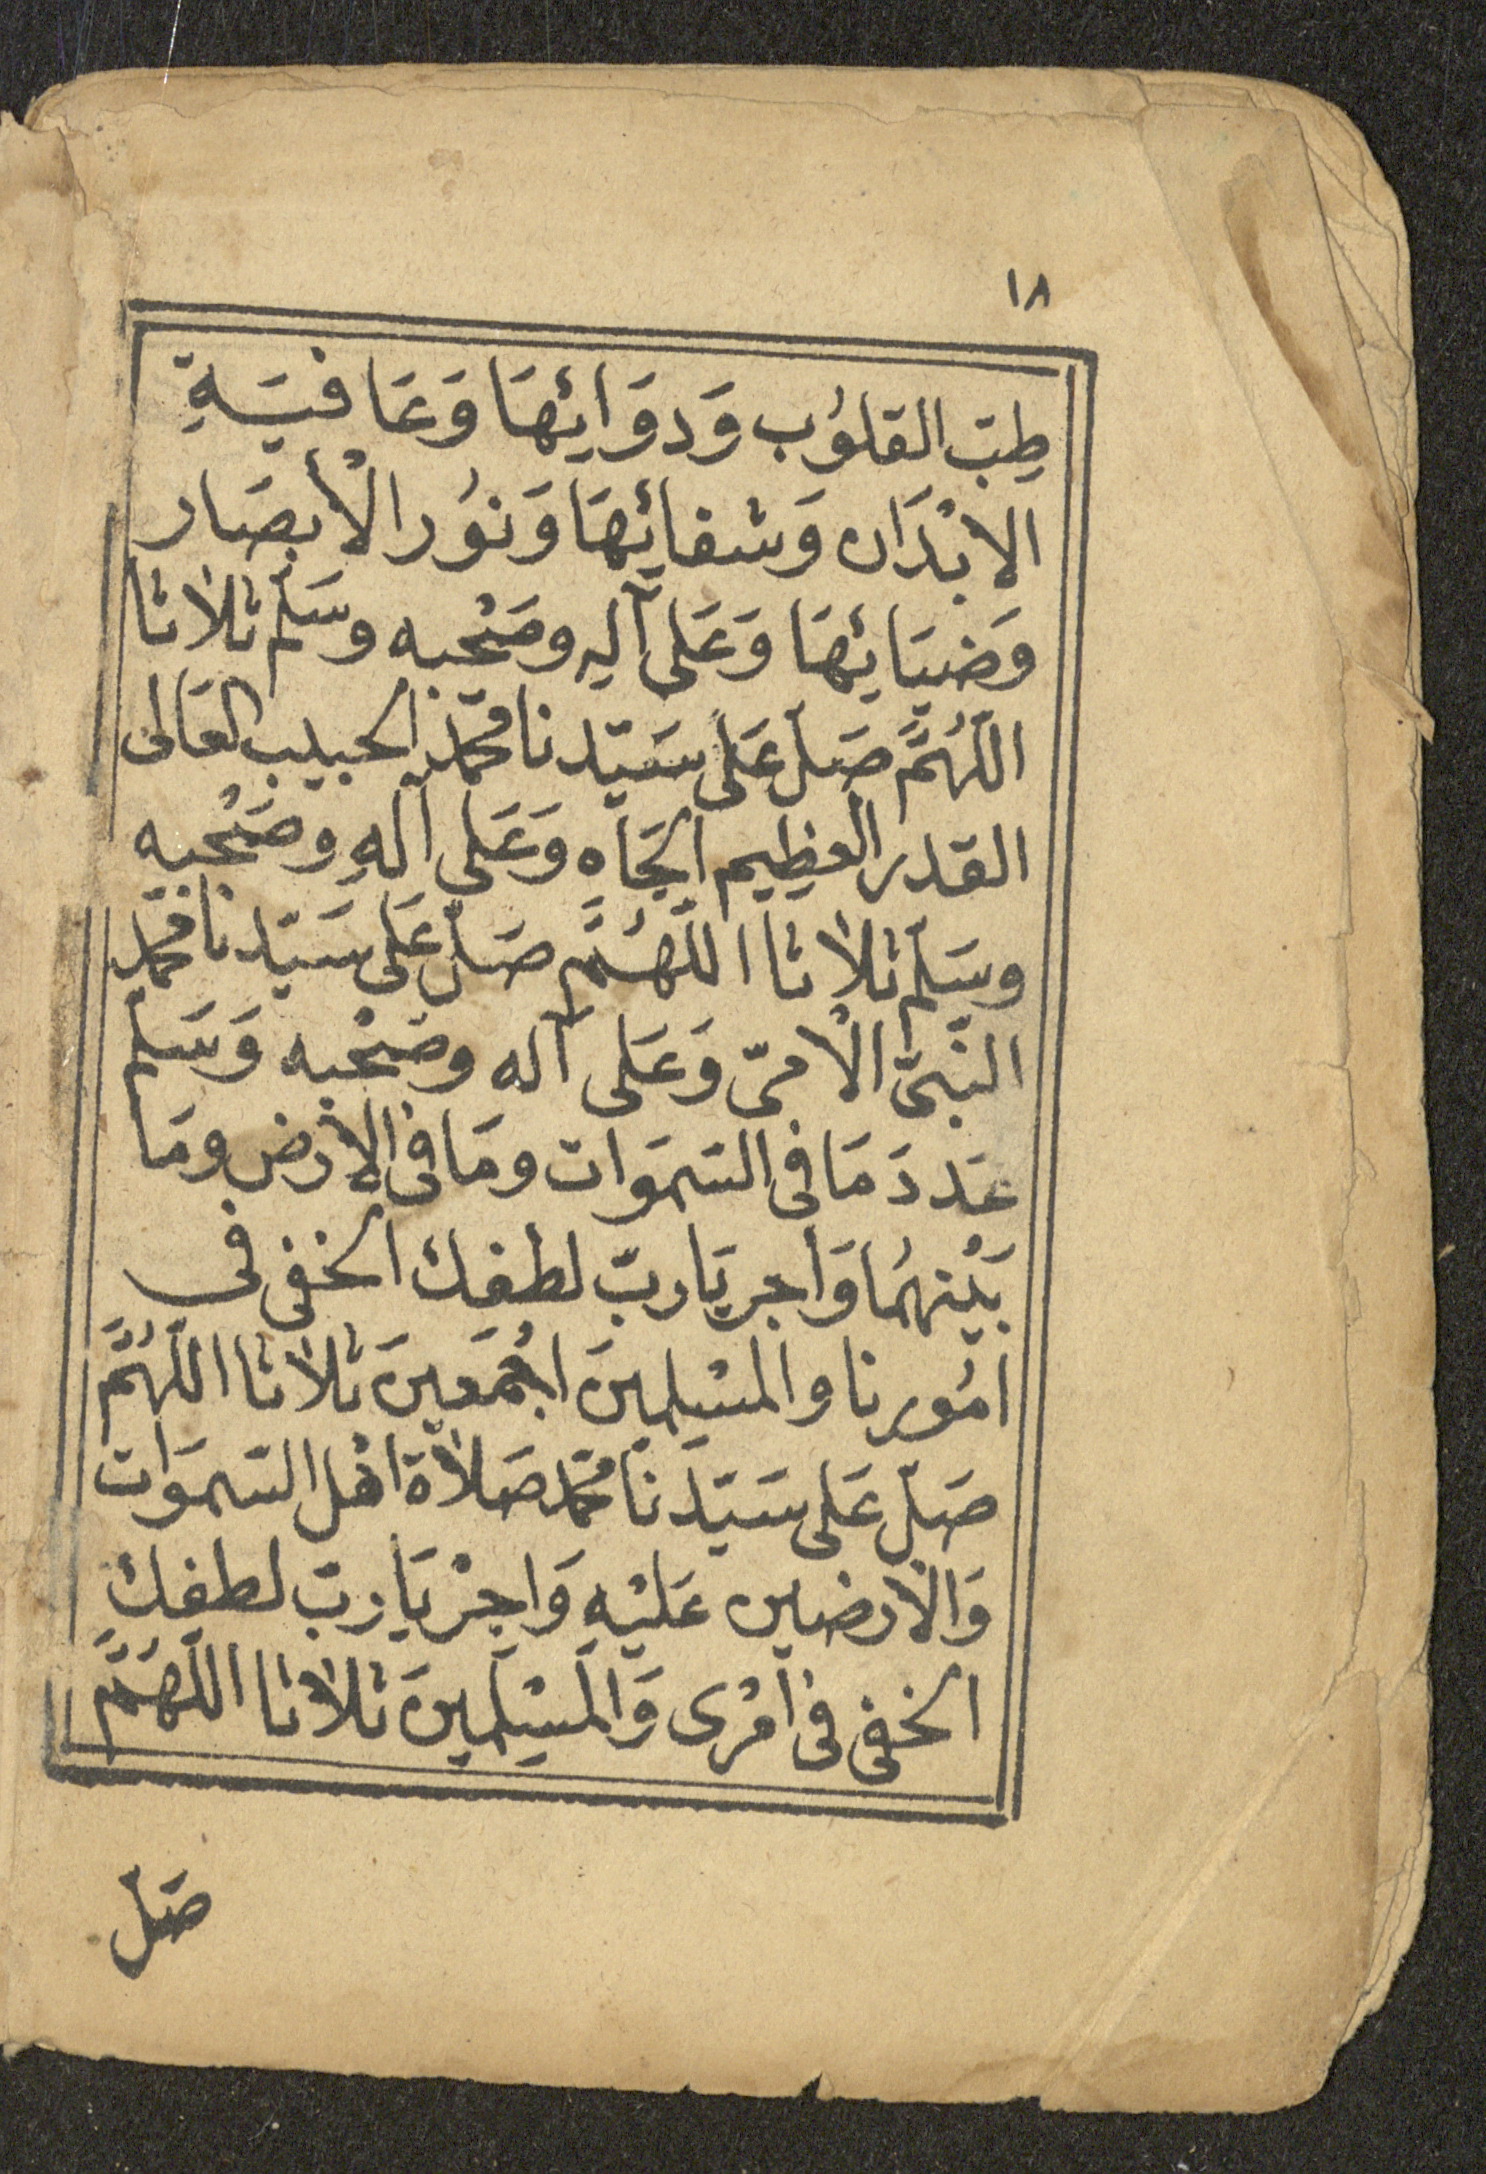 ١٨
طِبّ القلوُب وَدوَائهَا وَعَافيَةِ
الابْدَان وَشفائهَا وَنوُر الْأبصَار
وَضيَائهَا وَعَلى آلِهِ وصَحْبه وسَلّم ثلاثا
اللّهُمَّ صَلّ عَلَى سَيّدنا محمّد الحبيب العَالى
القدر العظِيم الجَاهِ وَعَلى آلهِ وصَحْبِه
وسَلّم ثلاثا اللّهُمَّ صَلّ عَلى سَيّدنا محمّد
النّبىّ الْأمىّ وَعَلى آله وصَحْبه وَسَلم
عَددَ مَا فى السّموَات ومَا فى الارْض ومَا
بَيْنهُمَا وَاجر يَاربّ لطفك الخفى فى
امُورنا والمسْلمِينَ اجْمَعِينَ ثلاثا اللّهُمَّ
صَلّ عَلى سَيّدَنَا محمّد صَلاَة اهْل السّموَات
وَالارْضين عَليْهِ وَاجِرْ يَا ربّ لطفِكَ
الخفى فى امْرى وَالمسْلِمِينَ ثلاثا اللّهُمَّ
صَلّ